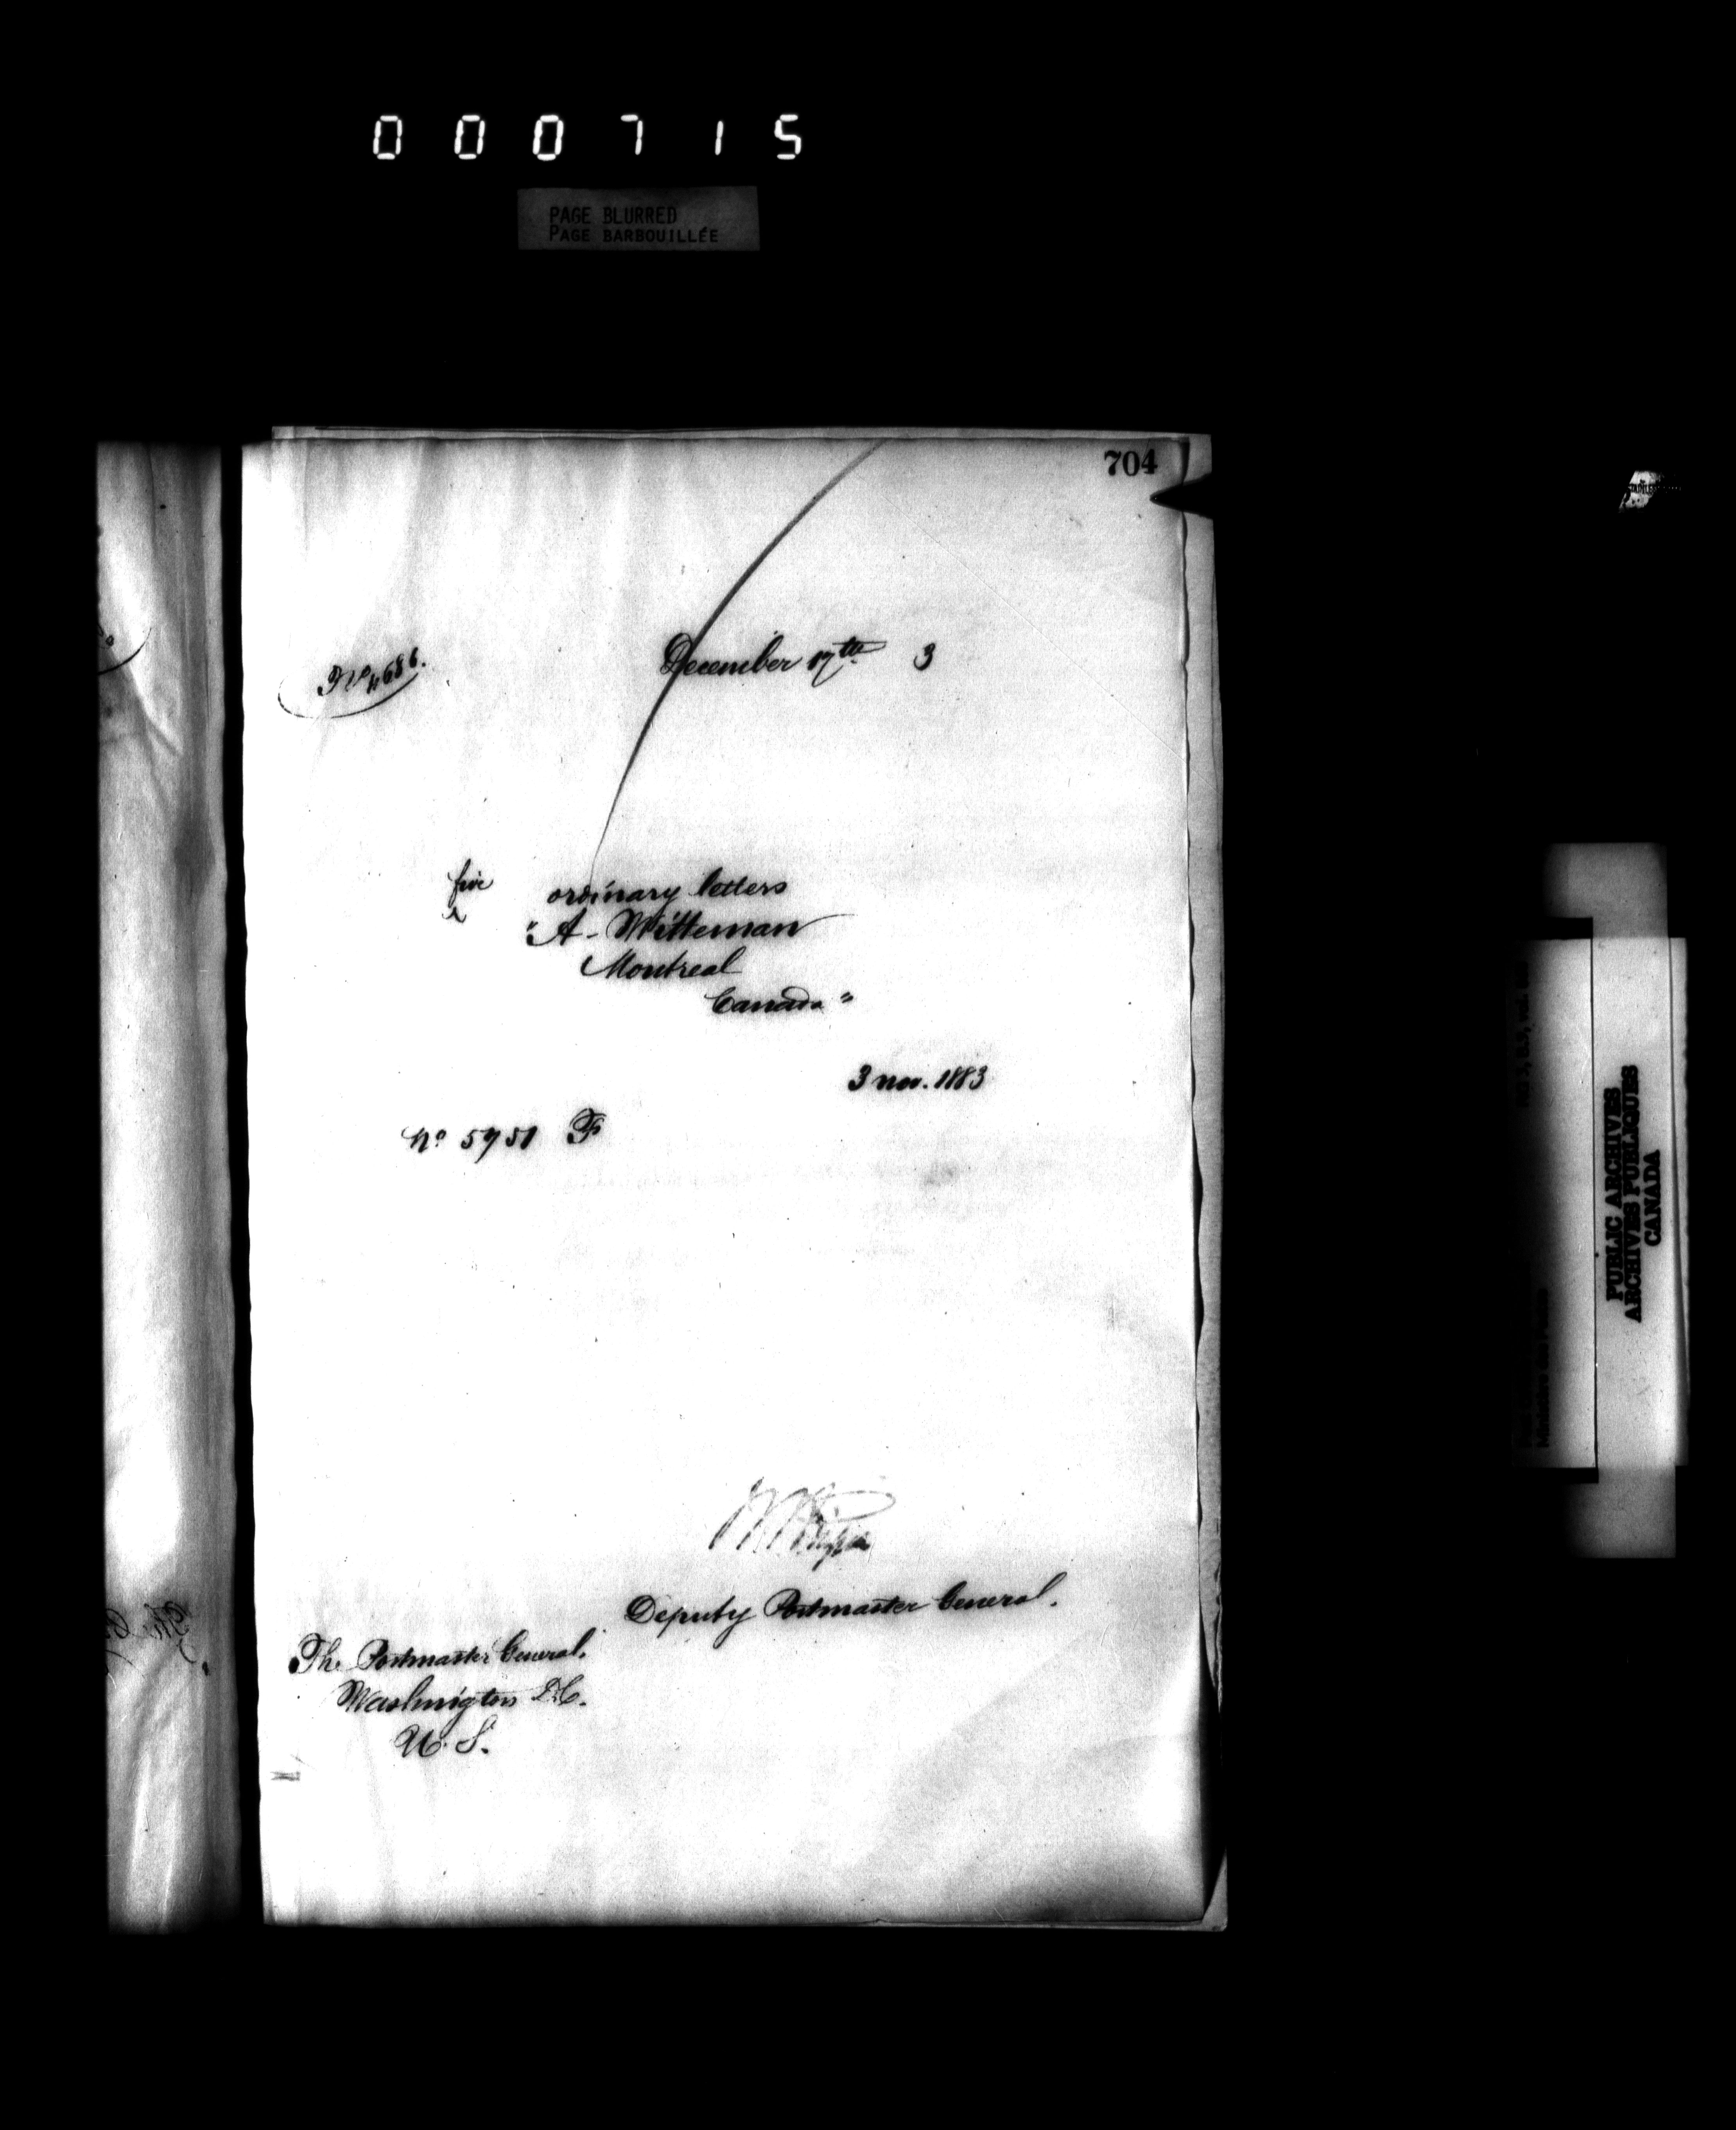 000715
PAGE BLURRED
PAGE BARBOUILLÉE
704
No 4686.
December 17th 3
five
ordinary letters
"A. Witteman
Montreal
Canada"
3 nov. 1883
No 5751 F
Deputy Postmaster General.
The Postmaster General,
Washington D.C.
U.S.
PUBLIC ARCHIVES
ARCHIVES PUBLIQUES
CANADA